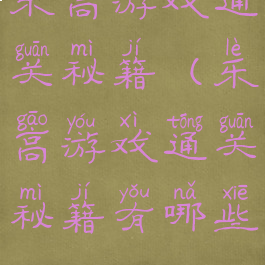 乐高游戏通
guān mì jí lè
关秘籍（乐
gāo yóu xì tōng guān
高游戏通关
mì jí yǒu nǎ xiē
秘籍有哪些